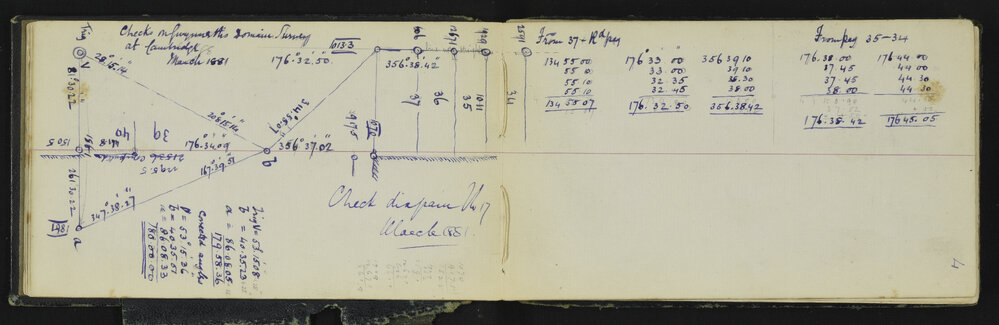 Checks on Gwynneth's Domain Survey
at Cambridge
March 1881
Trig
V
28°.15'.14"
81.30.22
176°.32'.50"
613.3
356°.38'.42"
37
36
35
34
1011
2671
929
2591
975
314°.55'.07"
208.15.14
b
356°.37'.02"
176°.34.09
167°.39'.51"
39
40
1505
1881
2153.6
1195.5
261.30.22
347°.38'.27"
1481
a
Trig V = 53.15.08
b = 40.35.23
a = 86.08.05
179.58.36
Corrected angles
V = 53.15.36
b = 40.35.51
a = 86.08.33
180.00.00
Check diagram No 17
March 1881.
From 37 + Rd peg
134 55 00
55 10
55 10
55 10
134 55 07
176 33 00
33 00
32 35
32 45
176.32.50
356 39 10
39 10
38.30
38.00
356.38.42
From peg 35-34
176.38.00
37.45
37.45
38.00
176.38.42
176 44 00
44 00
44 30
44 30
176 45.05
4